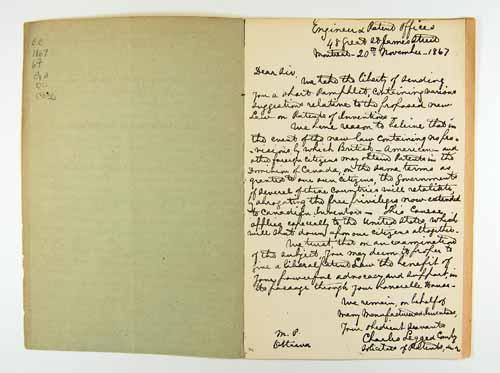 Engineer & Patent Offices
48 Great St James Street
Montreal 20th November 1867
Dear Sir,
We take the liberty of sending
you a short Pamphlet, containing various
suggestions relative to the proposed new
Law on Patents of Inventions.
We have reason to believe that in
the event of the new law containing no pro-
visions by which British - American - and
other foreign citizens may obtain Patents in the
Dominion of Canada, on the same terms as
granted to our own citizens, the Governments
of several of these Countries will retaliate
abrogating the free privileges now extended
to Canadian Inventors - This
applies especially to the United States, which
will shut down upon our citizens altogether.
We trust that on an examination
of the subject, you may deem it proper to
give a liberal Patent Law the benefit of
your powerful advocacy and support in
its passage through your Honorable House -
We remain, on behalf of
many Manufacturers & Inventors,
Your obedient servants
Charles Legge & Co
Solicitors of Patents,
M. P.
Ottawa
1867
67